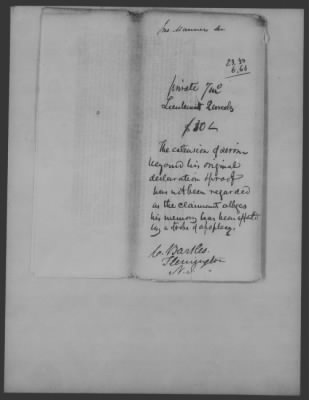 Jno. Manners
23.30
6.66
private 7 mo
Lieutenant 2 weeks
The extension of service
beyond his original
declaration & proof
has not been regarded
as the claimant alleges
his memory has been affected
by a stroke of apoplexy.
C. Bartles
Flemington
N. J.